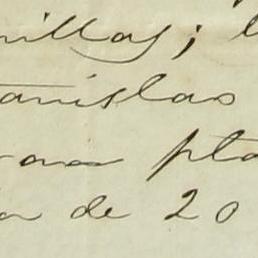 nillas; l
tanislao
ran pla
a de 20